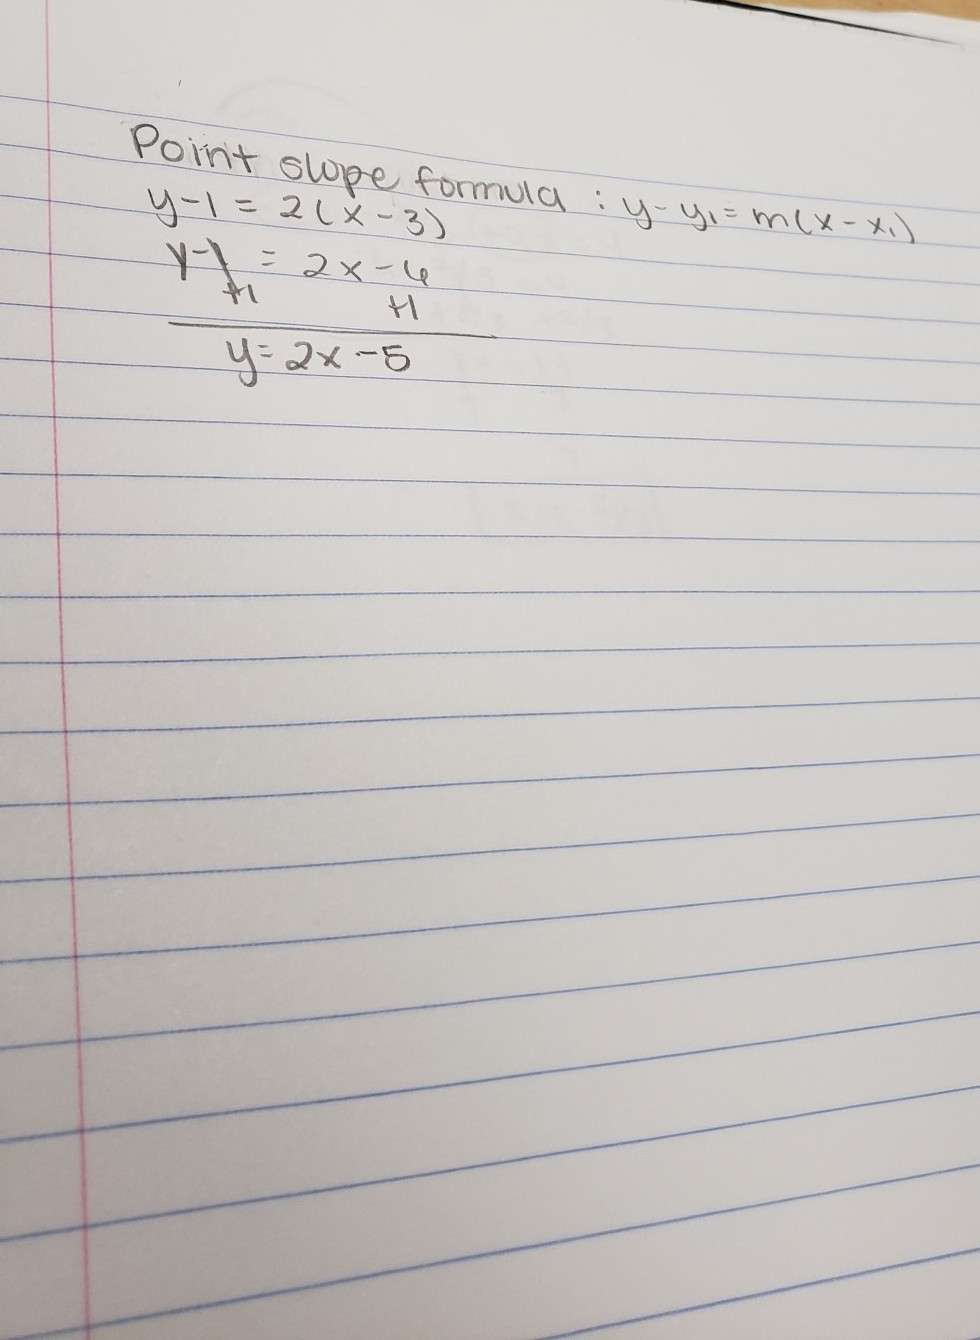 Point slope formula : y-y₁ = m(x-x₁)
y-1 = 2(x-3)
y-1 = 2x-6
+1 +1
y=2x-5